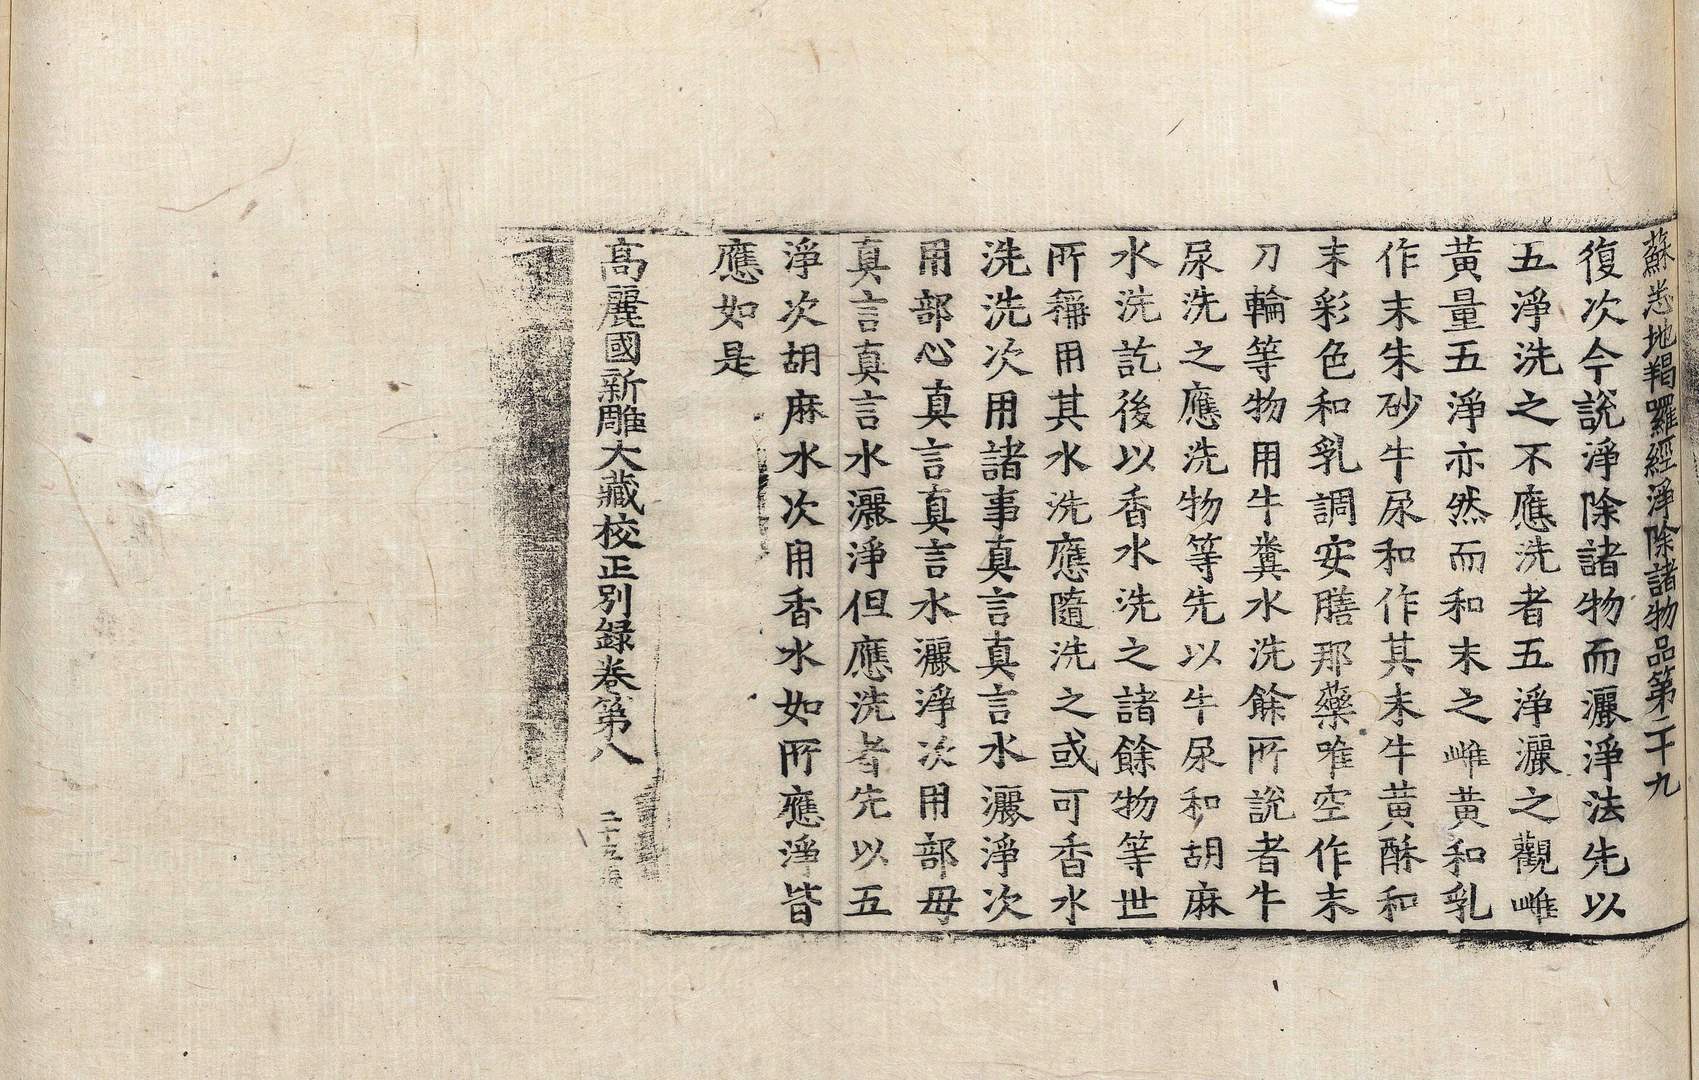 蘇悉地羯囉經淨除諸物品第二十九
復次今說淨除諸物而灑淨法先以
五淨洗之不應洗者五淨灑之觀雌
黃量五淨亦然而和末之雌黃和乳
作末朱砂牛尿和作其末牛黃酥和
末彩色和乳調安膳那藥唯空作末
刀輪等物用牛糞水洗餘所說者牛
尿洗之應洗物等先以牛尿和胡麻
水洗訖後以香水洗之諸餘物等世
所稱用其水洗應隨洗之或可香水
洗洗次用諸事真言真言水灑淨次
用部心真言真言水灑淨次用部母
真言真言水灑淨但應洗者先以五
淨次胡麻水次用香水如所應淨皆
應如是
高麗國新雕大藏校正別錄卷第八
二十五張